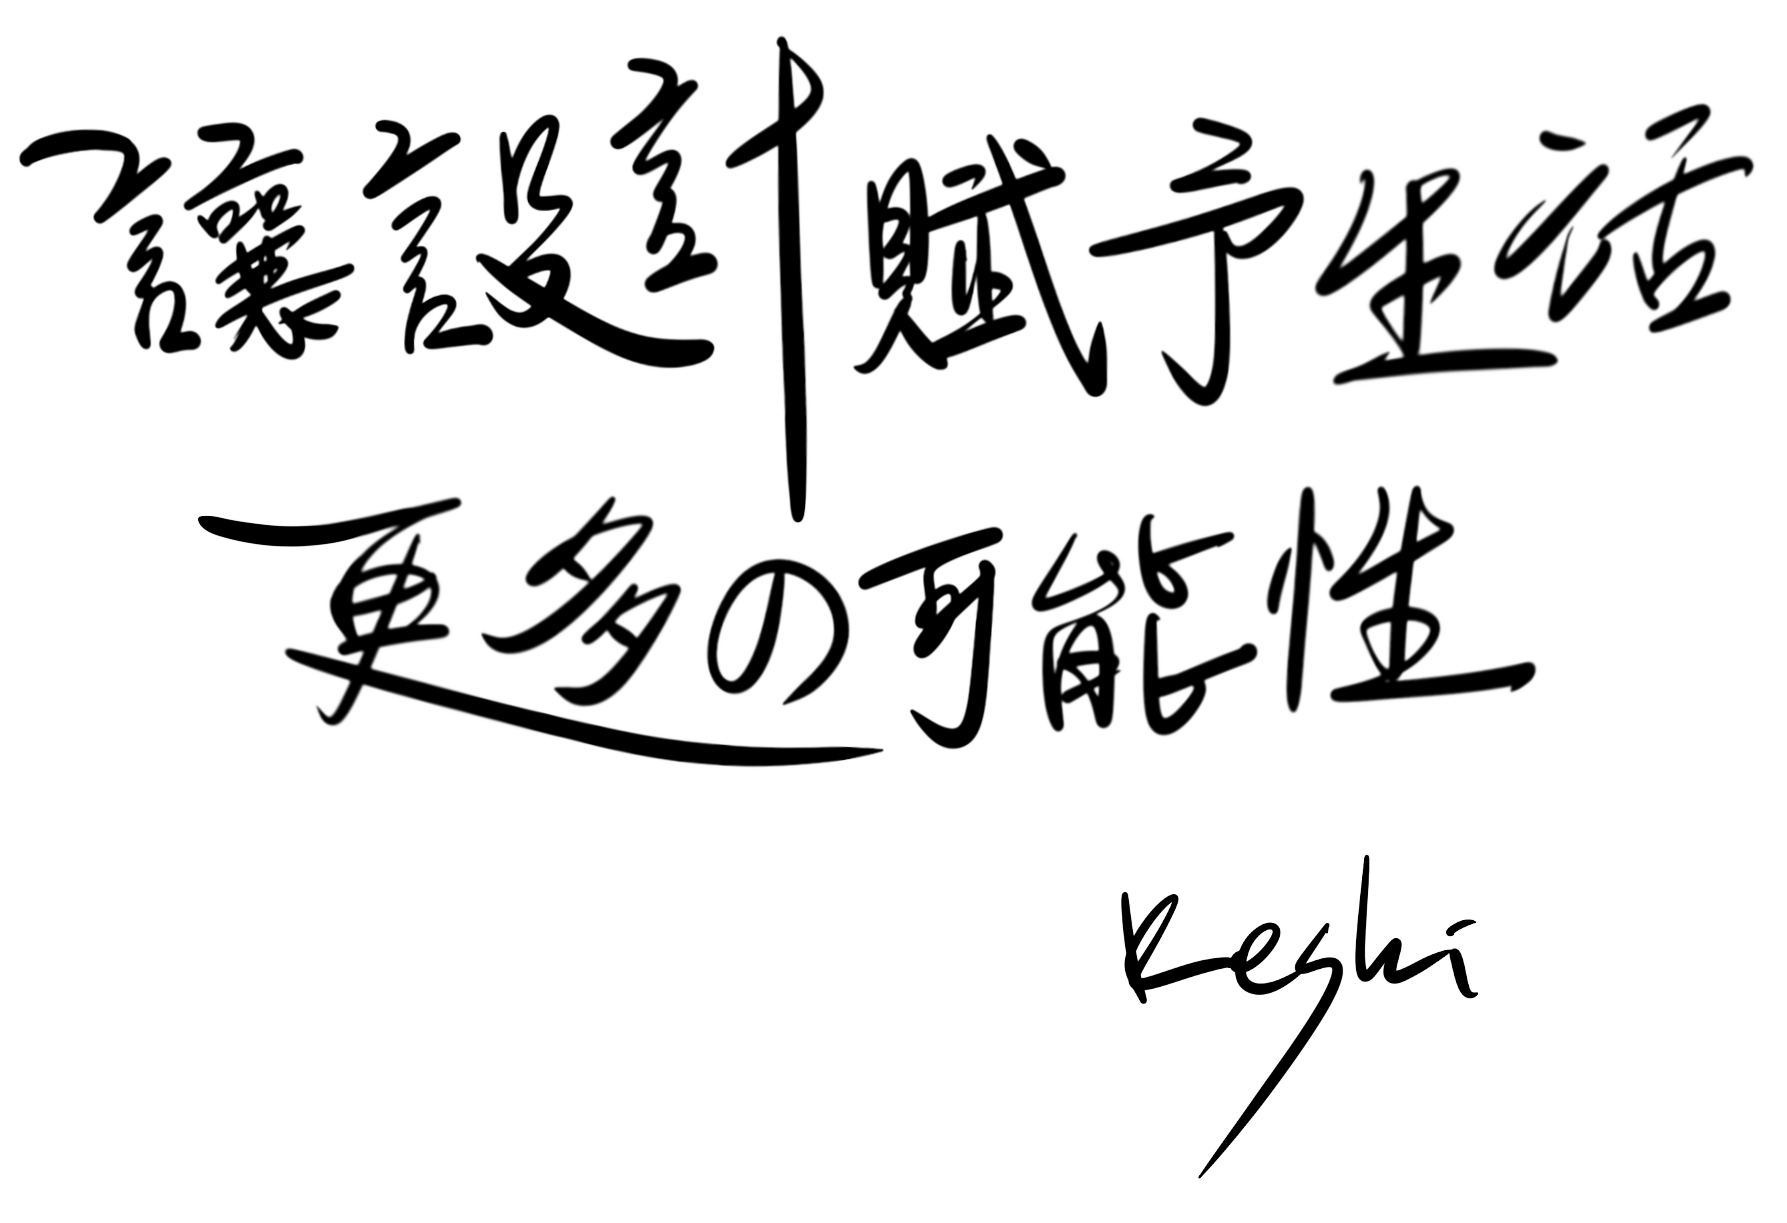 讓設計賦予生活
更多の可能性
Keshi